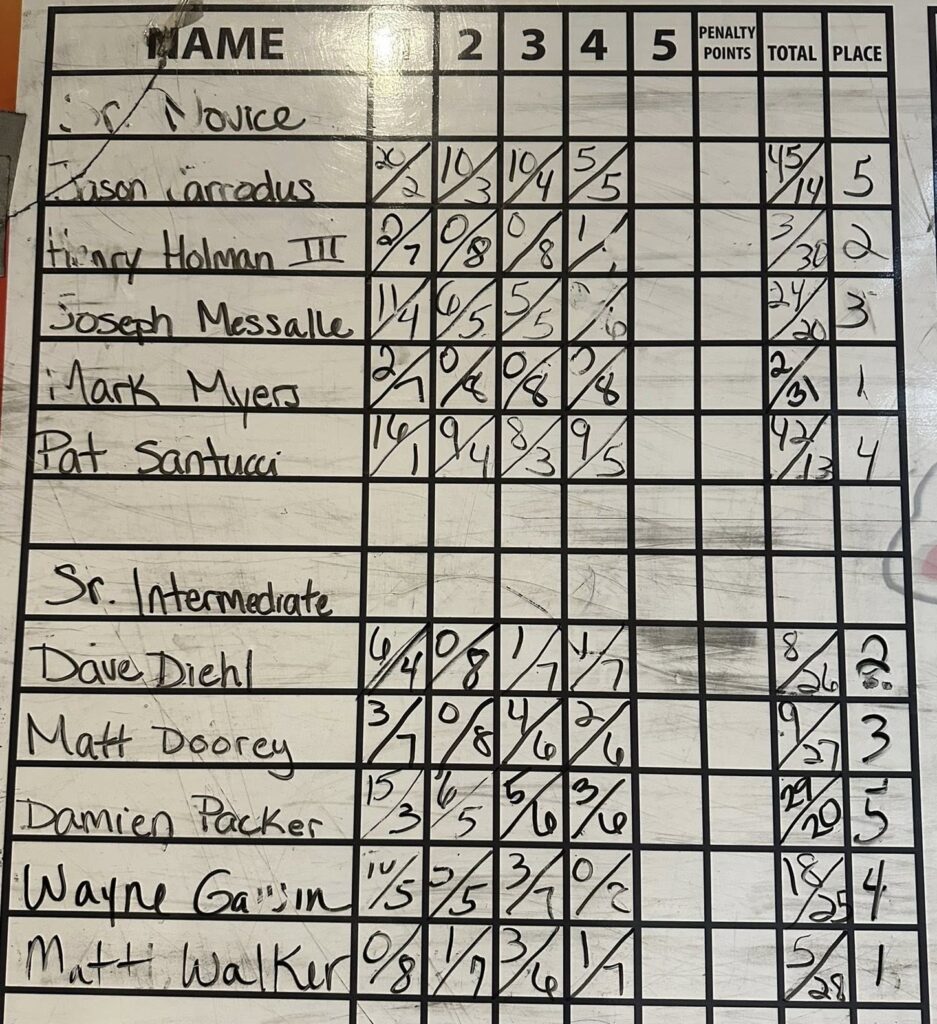 NAME 1 2 3 4 5 PENALTY POINTS TOTAL PLACE
Sr. Novice
Jason Carrodus 20/2 10/3 10/4 5/5 45/14 5
Henry Holman III 2/7 0/8 0/8 1/ 3/30 2
Joseph Messalle 11/4 6/5 5/5 /6 24/20 3
Mark Myers 2/7 0/8 0/8 0/8 2/31 1
Pat Santucci 16/1 9/4 8/3 9/5 42/13 4
Sr. Intermediate
Dave Diehl 6/4 0/8 1/7 1/7 8/26 2
Matt Doorey 3/7 0/8 4/6 2/6 9/27 3
Damien Packer 15/3 6/5 5/6 3/6 29/20 5
Wayne 10/5 /5 3/7 0/ 18/25 4
Matt Walker 0/8 1/7 3/6 1/7 5/28 1